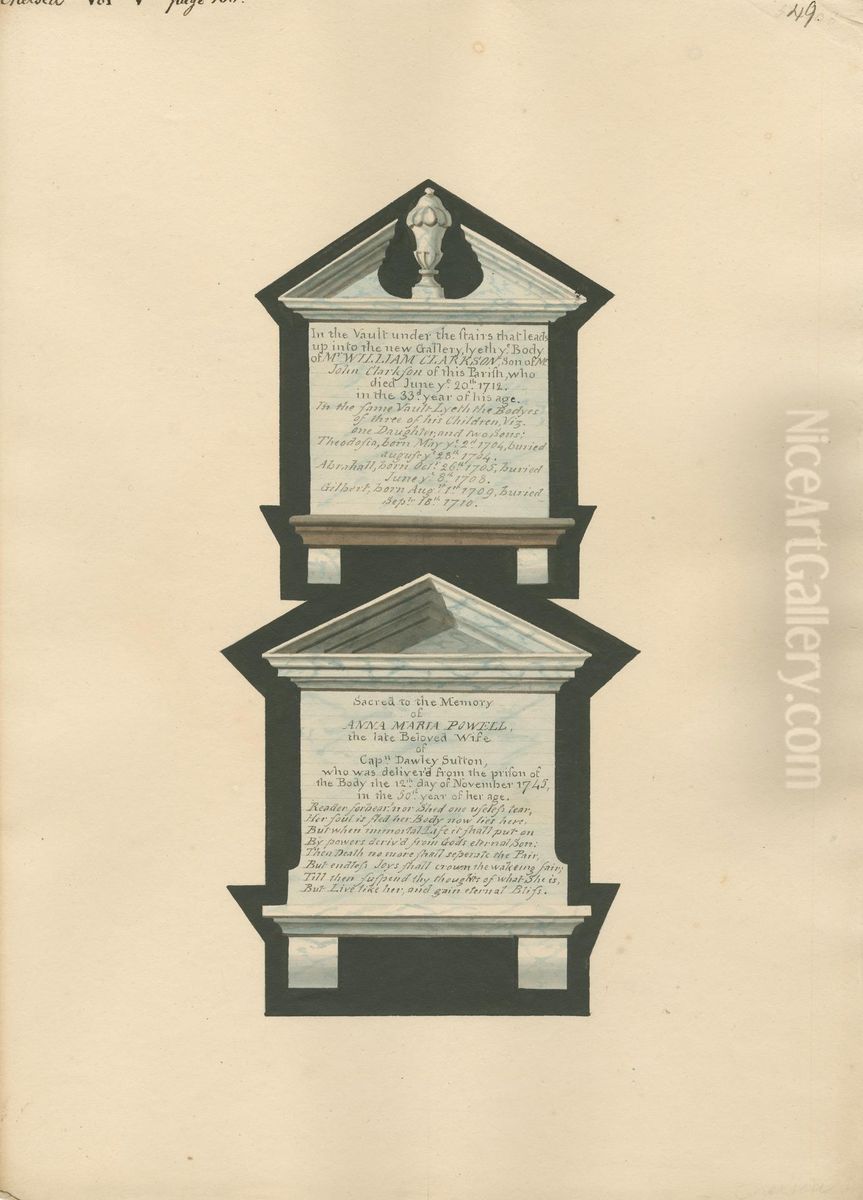 Chelsea Vol V page
49.
In the Vault under the ſtairs that leads
up into the new Gallery, lyeth yͤ. Body
of Mͬ. WILLIAM CLARKSON, Son of Mͬ.
John Clarkſon of this Pariſh, who
died June yͤ. 20ᵗʰ 1712.
in the 33ᵈ. year of his age.
In the ſame Vault Lyeth the Bodyes
of three of his Children, Viz.
one Daughter, and two ſons:
Theodoſia, born May yͤ. 2ᵈ 1704, buried
auguſt yͤ 28ᵗʰ 1704.
Abrahall, born Octʳ. 26ᵗʰ 1705, buried
June yͤ. 8ᵗʰ. 1708.
Gilbert, born Augˢᵗ. 1ᵗʰ 1709, buried
Sepʳ. 18ᵗʰ. 1710.
Sacred to the Memory
of
ANNA MARIA POWELL,
the late Beloved Wife
of
Capⁿ. Dawley Sutton,
who was deliver'd from the priſon of
the Body the 12ᵗʰ. day of November 1745,
in the 50ᵗʰ. year of her age.
Reader forbear, nor Shed one uſeleſs tear,
Her ſoul is fled her Body now lies here;
But when immortal Life it ſhall put on
By powers deriv'd from Gods eternal Son;
Then Death no more ſhall ſeperate the Pair,
But endleſs Joys ſhall crown the wakeing fair;
Till then ſuſpend thy thoughts of what She is,
But Live like her, and gain eternal Bliſs.
NiceArtGallery.com